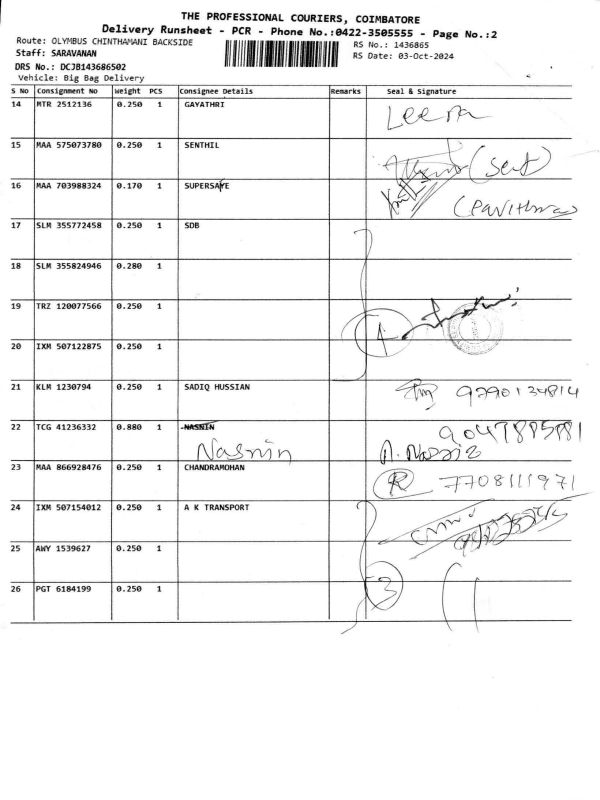 THE PROFESSIONAL COURIERS, COIMBATORE
Delivery Runsheet - PCR - Phone No.:0422-3505555 - Page No.:2
Route: OLYMBUS CHINTHAMANI BACKSIDE
RS No.: 1436865
Staff: SARAVANAN
RS Date: 03-Oct-2024
DRS No.: DCJB143686502
Vehicle: Big Bag Delivery
S No Consignment No Weight PCS Consignee Details Remarks Seal & Signature
14 MTR 2512136 0.250 1 GAYATHRI Leena
15 MAA 575073780 0.250 1 SENTHIL
16 MAA 703988324 0.170 1 SUPERSAYE (Pavithra)
17 SLM 355772458 0.250 1 SDB
18 SLM 355824946 0.280 1
19 TRZ 120077566 0.250 1 4
20 IXM 507122875 0.250 1
21 KLM 1230794 0.250 1 SADIQ HUSSIAN 9790134814
22 TCG 41236332 0.880 1 NASNIN
Nasnin
23 MAA 866928476 0.250 1 CHANDRAMOHAN R 7708111971
24 IXM 507154012 0.250 1 A K TRANSPORT
25 AWY 1539627 0.250 1
26 PGT 6184199 0.250 1 3